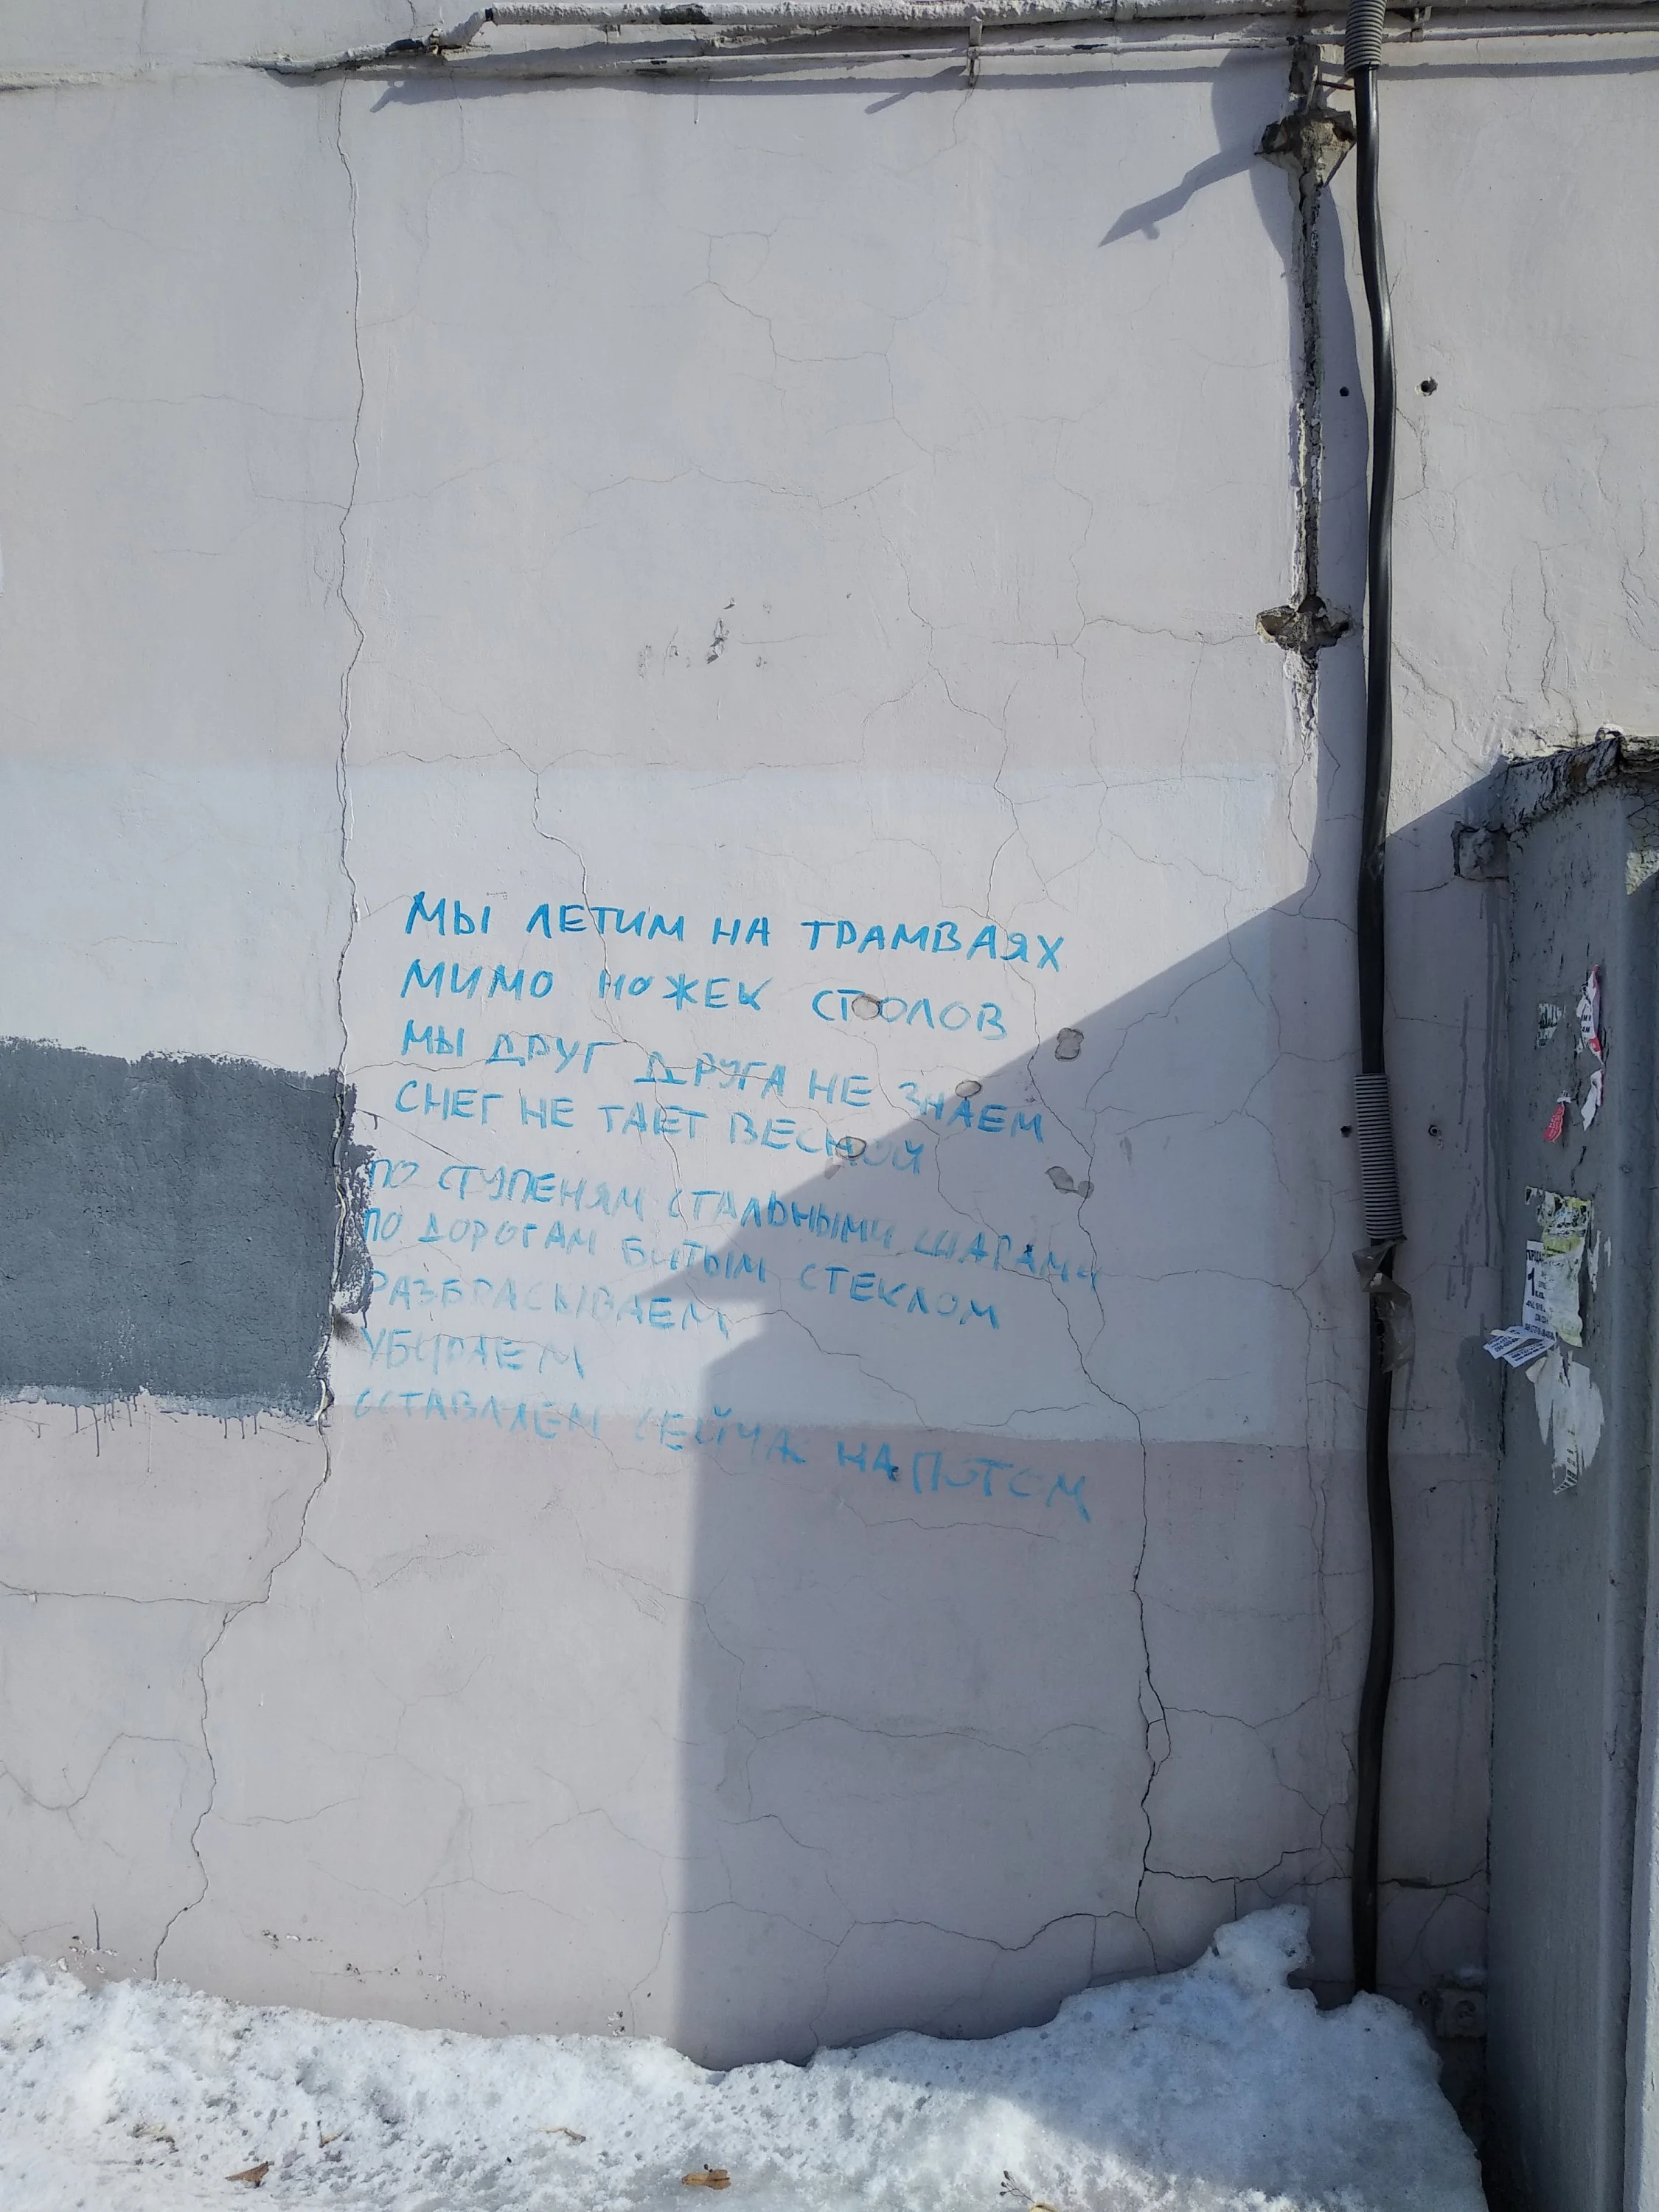 МЫ ЛЕТИМ НА ТРАМВАЯХ
МИМО НОЖЕК СТОЛОВ
МЫ ДРУГ ДРУГА НЕ ЗНАЕМ
СНЕГ НЕ ТАЕТ ВЕСНОЙ
ПО СТУПЕНЯМ СТАЛЬНЫМИ ШАРАМИ
ПО ДОРОГАМ БИТЫМ СТЕКЛОМ
РАЗБРАСЫВАЕМ
УБИРАЕМ
ОСТАВЛЯЕМ СЕЙЧАС НА ПОТОМ